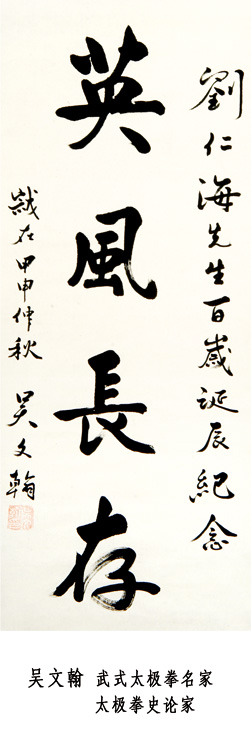 劉仁海先生百歲誕辰紀念
英風長存
歲在甲申仲秋 吴文翰
吴文翰 武式太极拳名家
太极拳史论家